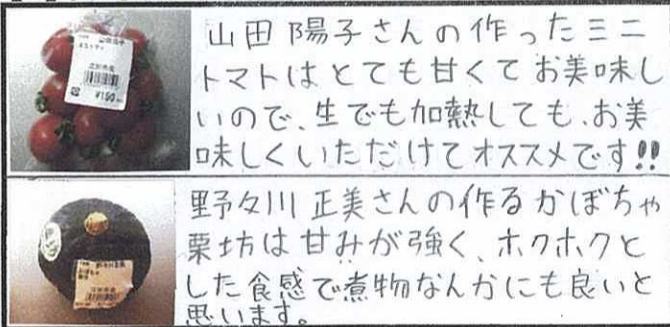 山田陽子さんの作ったミニ
トマトはとても甘くてお美味し
いので、生でも加熱しても、お美
味しくいただけてオススメです!!
¥150
野々川正美さんの作るかぼちゃ
栗坊は甘みが強く、ホクホクと
した食感で煮物なんかにも良いと
思います。